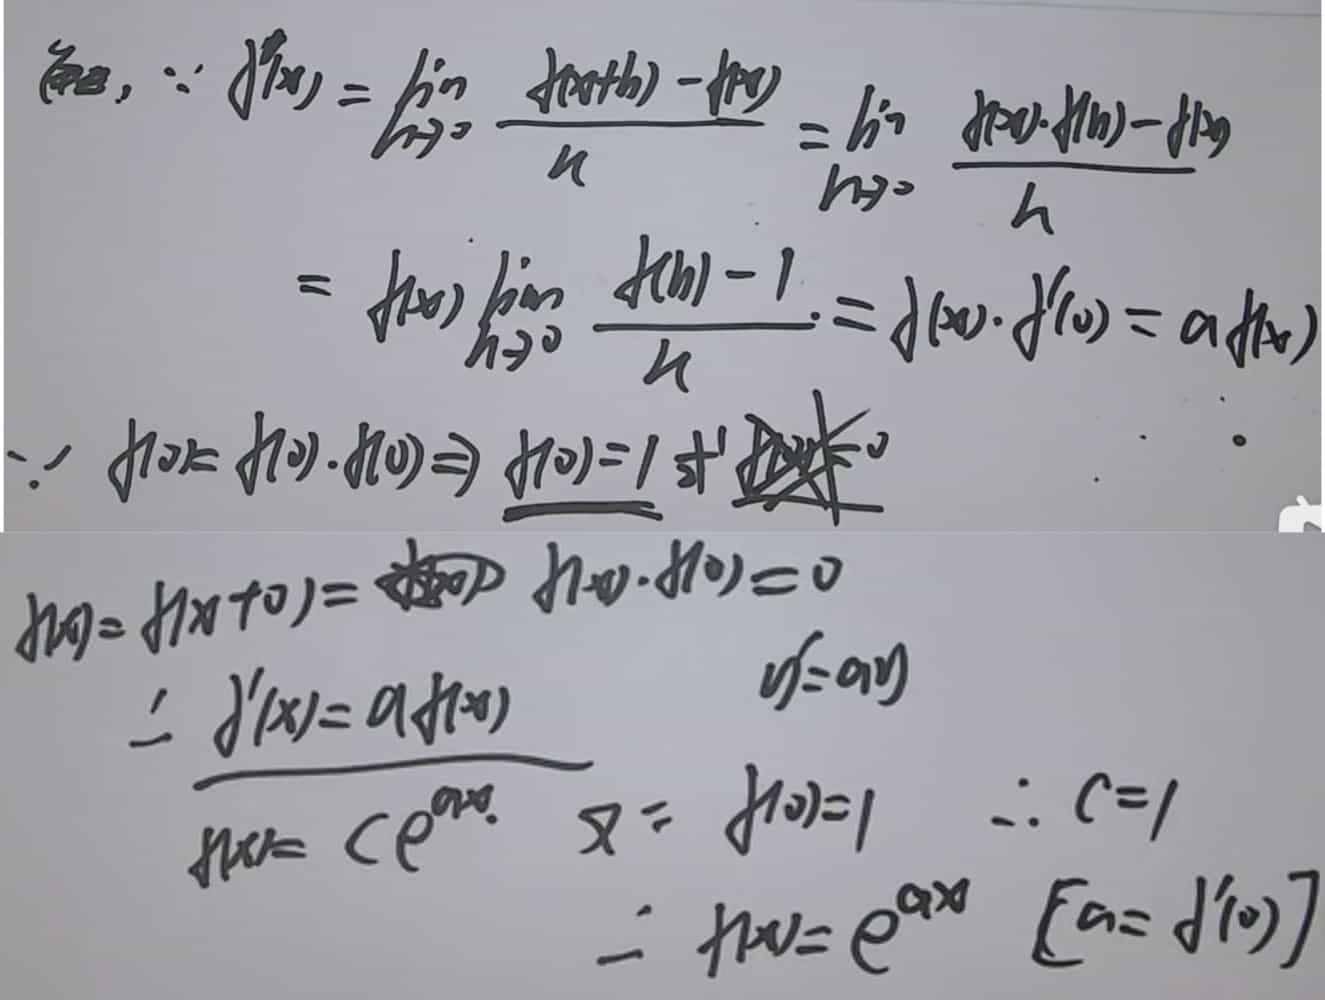 ∵ f'(x) = lim h→0 (f(x+h) - f(x))/h = lim h→0 (f(x)·f(h) - f(x))/h
= f(x) lim h→0 (f(h) - 1)/h = f(x)·f'(0) = a f(x)
∵ f(0) = f(0)·f(0) ⇒ f(0) = 1 或
f(x) = f(x+0) = f(x)·f(0) = 0
∴ f'(x) = a f(x) y' = ay
f(x) = Ce^{ax}. 又∵ f(0) = 1 ∴ C = 1
∴ f(x) = e^{ax} [a = f'(0)]